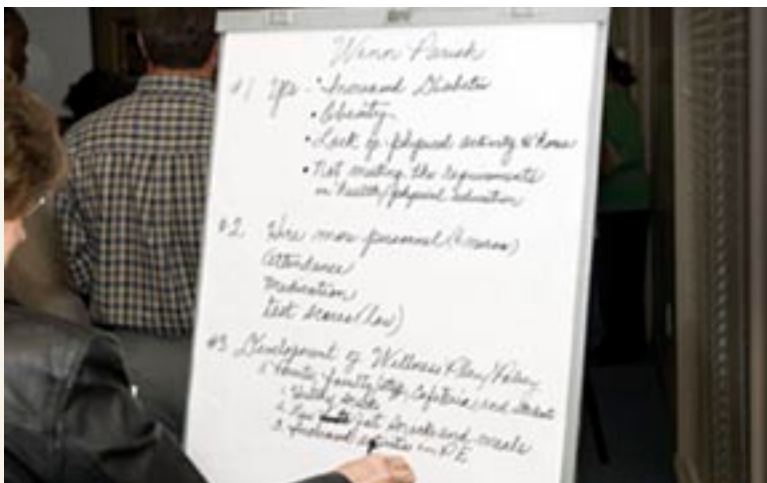 Winn Parish
#1 Yes - • Increased Diabetes
• Obesity
• Lack of physical activity @ home
• Not meeting the requirements
in health/physical education
#2 Hire more personnel (& nurses)
Attendance
Medication
Test Scores (low)
#3 Development of Wellness Plan/Policy
Parents, faculty, staff, Cafeteria, and student
1. Healthy snacks
2. Low fat snacks and meals
3. Increased activities in P.E.